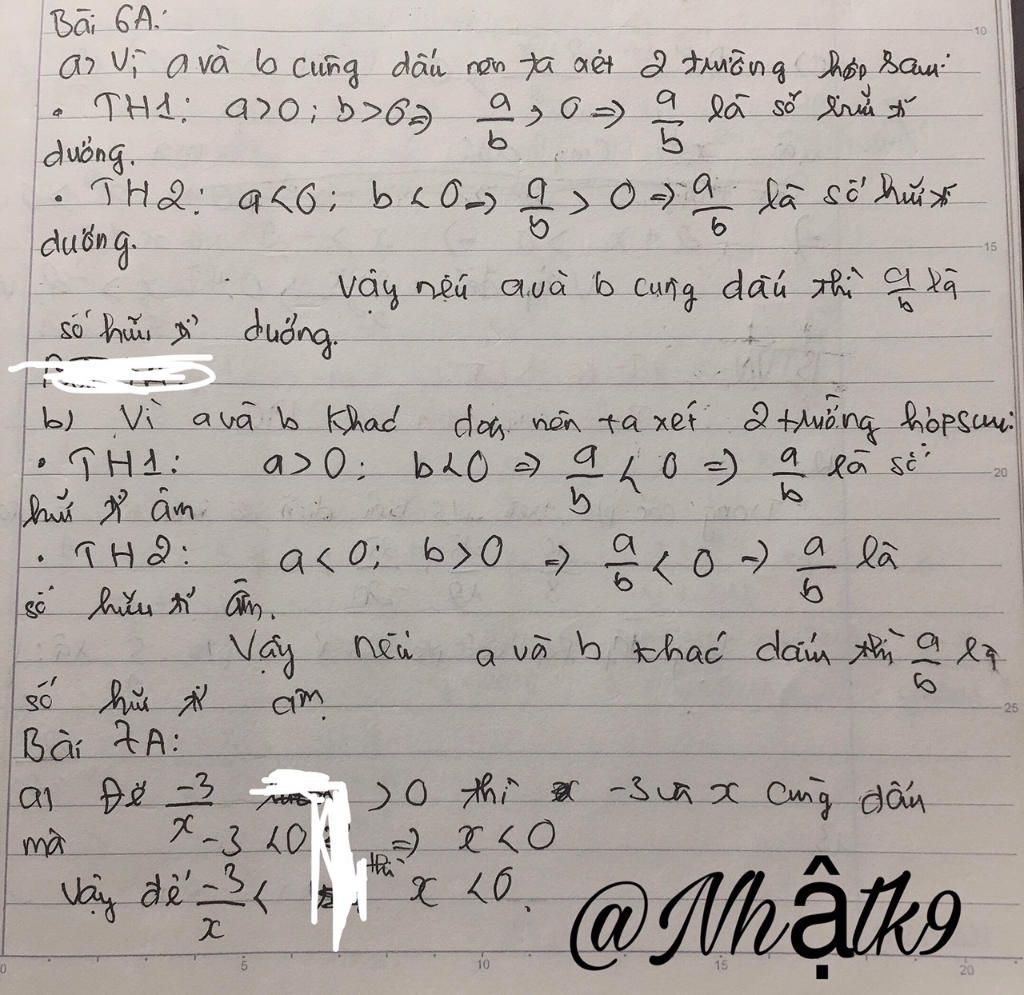 Bài 6A:
a) Vì a và b cùng dấu nên ta xét 2 trường hợp sau:
• TH1: a>0; b>0 => a/b > 0 => a/b là số hữu tỉ
dương.
• TH2: a<0; b<0 => a/b > 0 => a/b là số hữu tỉ
dương.
Vậy nếu a và b cùng dấu thì a/b là
số hữu tỉ dương.
b) Vì a và b khác dấu nên ta xét 2 trường hợp sau:
• TH1: a>0; b<0 => a/b < 0 => a/b là số
hữu tỉ âm
• TH2: a<0; b>0 => a/b < 0 => a/b là
số hữu tỉ âm.
Vậy nếu a và b khác dấu thì a/b là
số hữu tỉ âm.
Bài 7A:
a) Để -3/x > 0 thì -3 và x cùng dấu
mà -3 <0 => x<0
Vậy để -3/x < thì x <0.
@Nhậtk9
10
15
20
25
0 5 10 15 20